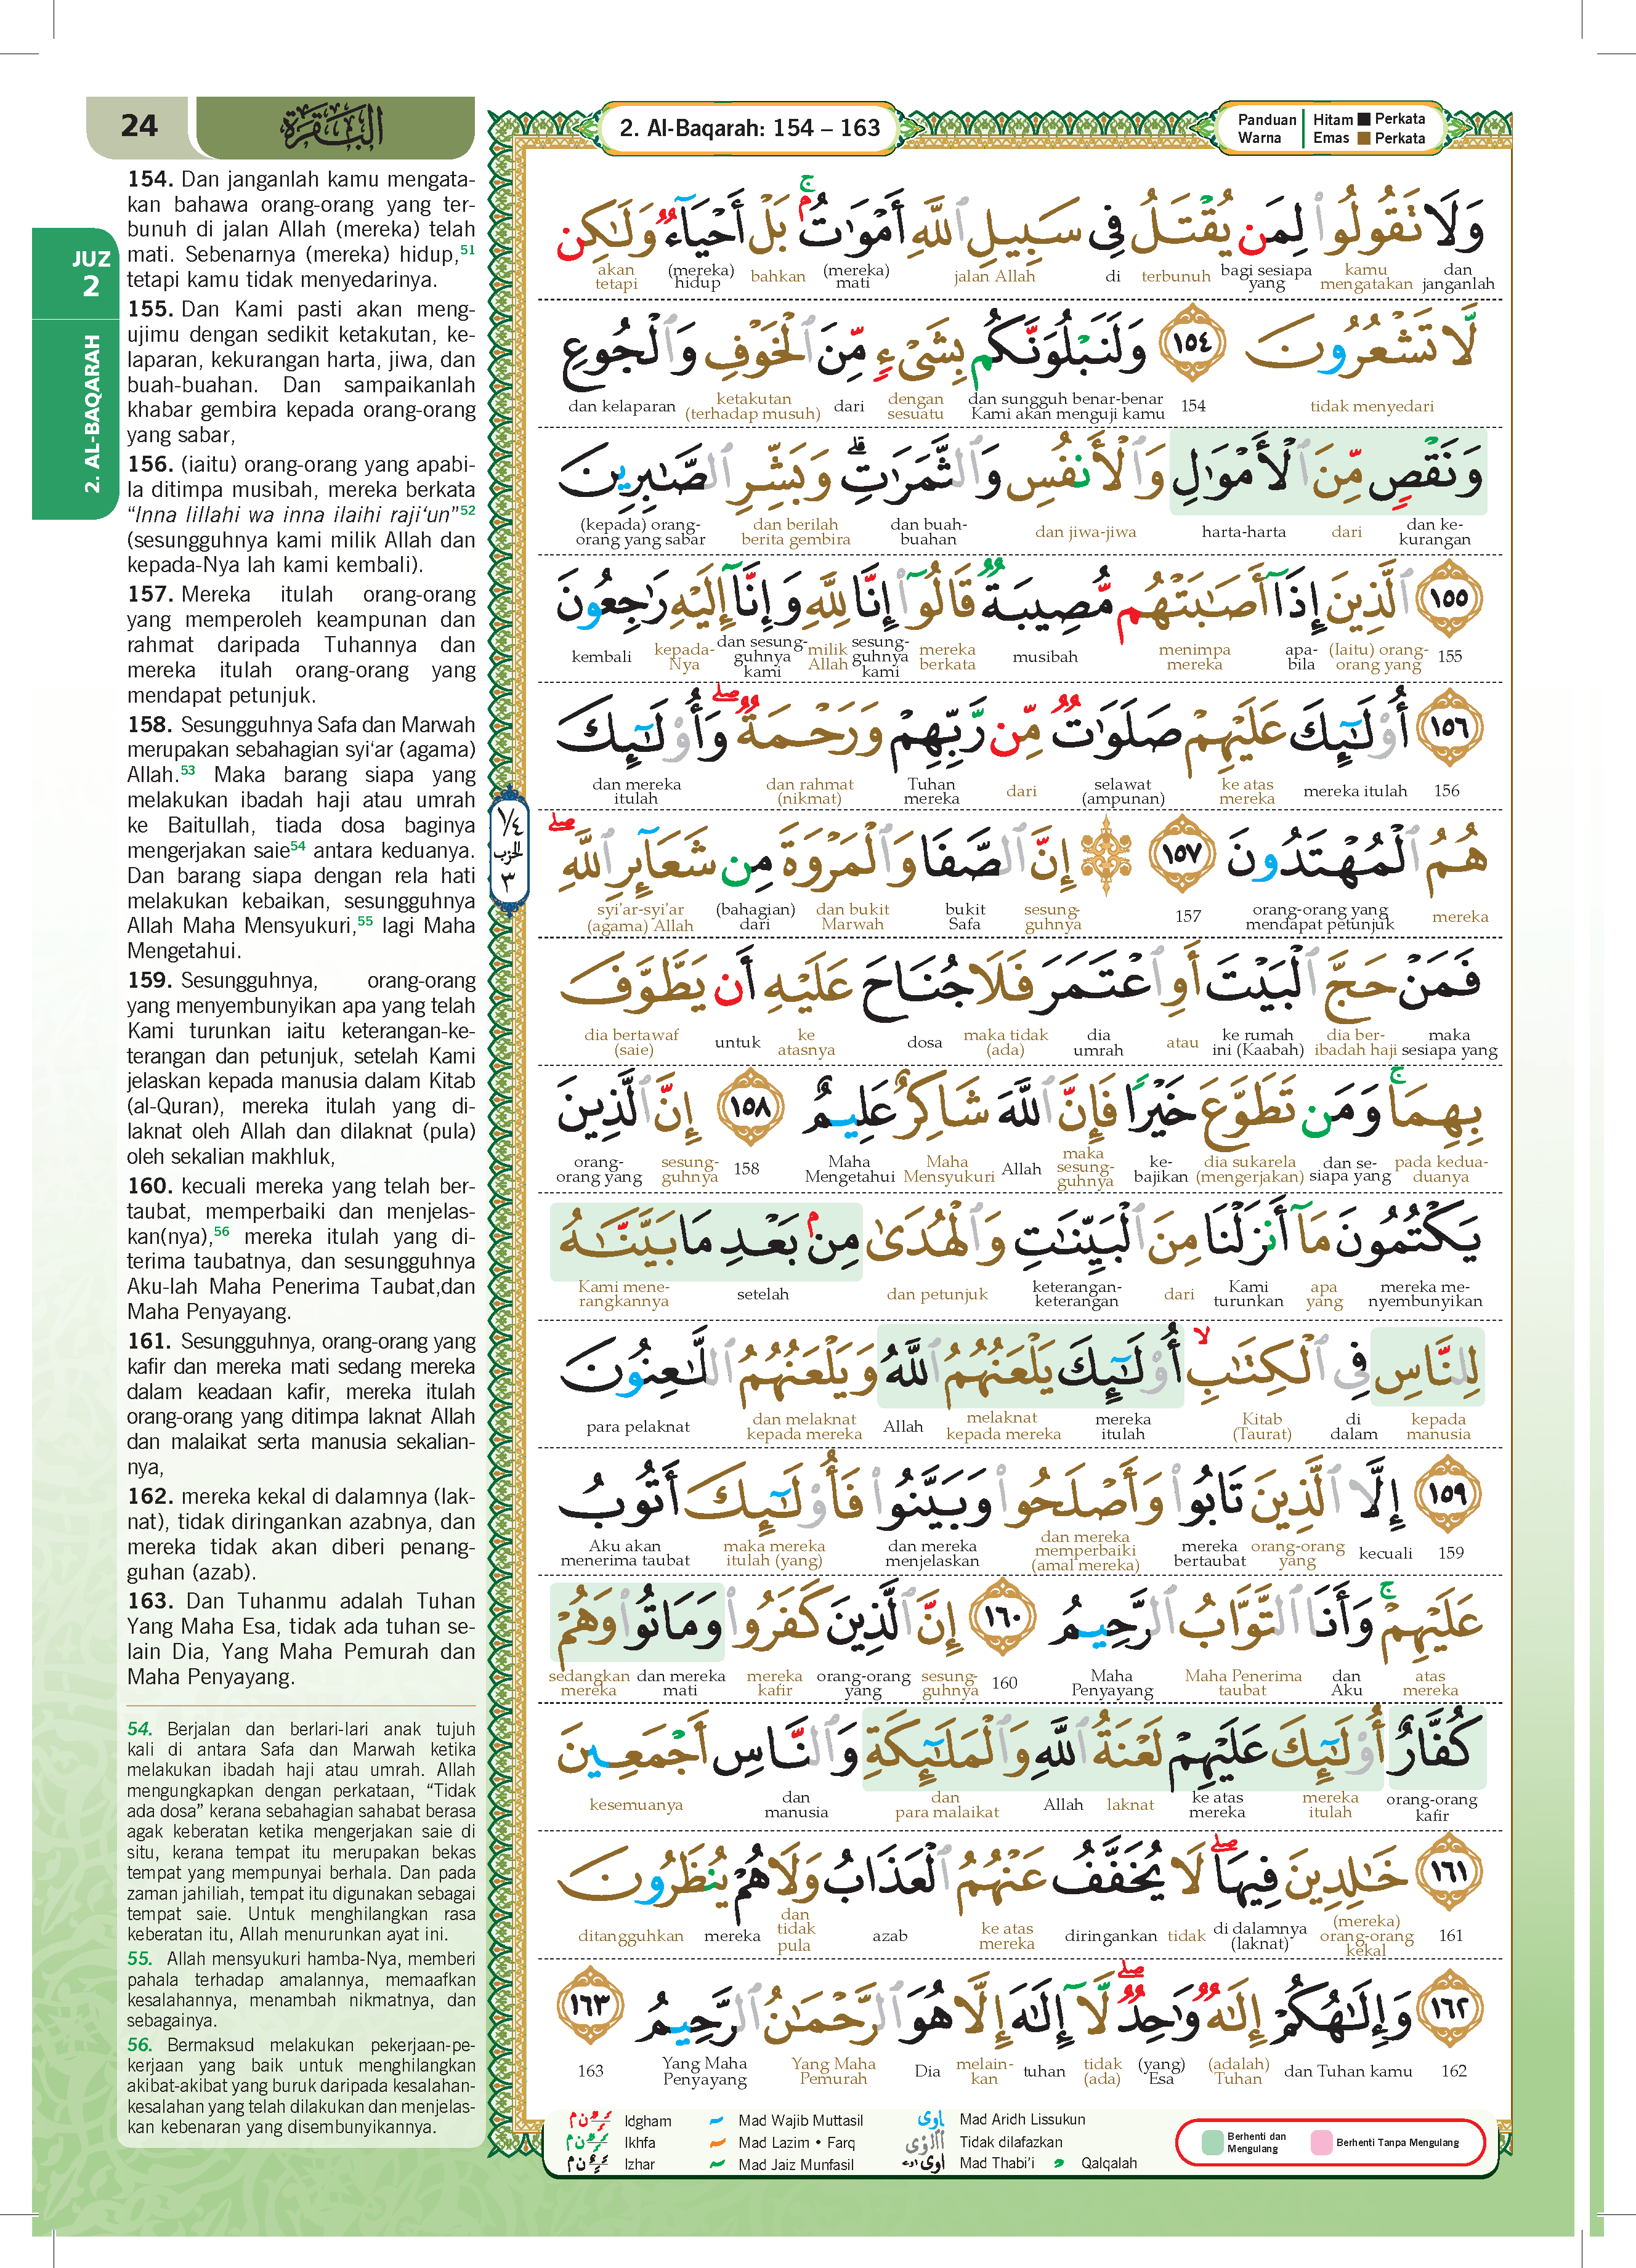 24
البقرة
2. Al-Baqarah: 154 – 163
Panduan Warna
Hitam Perkata
Emas Perkata
JUZ
2
2. AL-BAQARAH
154. Dan janganlah kamu mengata-
kan bahawa orang-orang yang ter-
bunuh di jalan Allah (mereka) telah
mati. Sebenarnya (mereka) hidup,51
tetapi kamu tidak menyedarinya.
155. Dan Kami pasti akan meng-
ujimu dengan sedikit ketakutan, ke-
laparan, kekurangan harta, jiwa, dan
buah-buahan. Dan sampaikanlah
khabar gembira kepada orang-orang
yang sabar,
156. (iaitu) orang-orang yang apabi-
la ditimpa musibah, mereka berkata
“Inna lillahi wa inna ilaihi raji‘un”52
(sesungguhnya kami milik Allah dan
kepada-Nya lah kami kembali).
157. Mereka itulah orang-orang
yang memperoleh keampunan dan
rahmat daripada Tuhannya dan
mereka itulah orang-orang yang
mendapat petunjuk.
158. Sesungguhnya Safa dan Marwah
merupakan sebahagian syi‘ar (agama)
Allah.53 Maka barang siapa yang
melakukan ibadah haji atau umrah
ke Baitullah, tiada dosa baginya
mengerjakan saie54 antara keduanya.
Dan barang siapa dengan rela hati
melakukan kebaikan, sesungguhnya
Allah Maha Mensyukuri,55 lagi Maha
Mengetahui.
159. Sesungguhnya, orang-orang
yang menyembunyikan apa yang telah
Kami turunkan iaitu keterangan-ke-
terangan dan petunjuk, setelah Kami
jelaskan kepada manusia dalam Kitab
(al-Quran), mereka itulah yang di-
laknat oleh Allah dan dilaknat (pula)
oleh sekalian makhluk,
160. kecuali mereka yang telah ber-
taubat, memperbaiki dan menjelas-
kan(nya),56 mereka itulah yang di-
terima taubatnya, dan sesungguhnya
Aku-lah Maha Penerima Taubat,dan
Maha Penyayang.
161. Sesungguhnya, orang-orang yang
kafir dan mereka mati sedang mereka
dalam keadaan kafir, mereka itulah
orang-orang yang ditimpa laknat Allah
dan malaikat serta manusia sekalian-
nya,
162. mereka kekal di dalamnya (lak-
nat), tidak diringankan azabnya, dan
mereka tidak akan diberi penang-
guhan (azab).
163. Dan Tuhanmu adalah Tuhan
Yang Maha Esa, tidak ada tuhan se-
lain Dia, Yang Maha Pemurah dan
Maha Penyayang.
54. Berjalan dan berlari-lari anak tujuh
kali di antara Safa dan Marwah ketika
melakukan ibadah haji atau umrah. Allah
mengungkapkan dengan perkataan, “Tidak
ada dosa” kerana sebahagian sahabat berasa
agak keberatan ketika mengerjakan saie di
situ, kerana tempat itu merupakan bekas
tempat yang mempunyai berhala. Dan pada
zaman jahiliah, tempat itu digunakan sebagai
tempat saie. Untuk menghilangkan rasa
keberatan itu, Allah menurunkan ayat ini.
55. Allah mensyukuri hamba-Nya, memberi
pahala terhadap amalannya, memaafkan
kesalahannya, menambah nikmatnya, dan
sebagainya.
56. Bermaksud melakukan pekerjaan-pe-
kerjaan yang baik untuk menghilangkan
akibat-akibat yang buruk daripada kesalahan-
kesalahan yang telah dilakukan dan menjelas-
kan kebenaran yang disembunyikannya.
¼ الحزب ٣
وَلَا تَقُولُوا۟ لِمَن يُقْتَلُ فِى سَبِيلِ ٱللَّهِ أَمْوَٰتٌۢ ۚ بَلْ أَحْيَآءٌ وَلَـٰكِن
dan janganlah kamu mengatakan bagi sesiapa yang terbunuh di jalan Allah (mereka) mati bahkan (mereka) hidup akan tetapi
لَّا تَشْعُرُونَ ١٥٤ وَلَنَبْلُوَنَّكُم بِشَىْءٍ مِّنَ ٱلْخَوْفِ وَٱلْجُوعِ
tidak menyedari 154 dan sungguh benar-benar Kami akan menguji kamu dengan sesuatu dari ketakutan (terhadap musuh) dan kelaparan
وَنَقْصٍ مِّنَ ٱلْأَمْوَٰلِ وَٱلْأَنفُسِ وَٱلثَّمَرَٰتِ ۗ وَبَشِّرِ ٱلصَّـٰبِرِينَ
dan ke-kurangan dari harta-harta dan jiwa-jiwa dan buah-buahan dan berilah berita gembira (kepada) orang-orang yang sabar
١٥٥ ٱلَّذِينَ إِذَآ أَصَـٰبَتْهُم مُّصِيبَةٌ قَالُوٓا۟ إِنَّا لِلَّهِ وَإِنَّآ إِلَيْهِ رَٰجِعُونَ
155 (Iaitu) orang-orang yang apa-bila menimpa mereka musibah mereka berkata sesung-guhnya kami milik Allah dan sesung-guhnya kami kepada-Nya kembali
١٥٦ أُو۟لَـٰٓئِكَ عَلَيْهِمْ صَلَوَٰتٌ مِّن رَّبِّهِمْ وَرَحْمَةٌ ۖ وَأُو۟لَـٰٓئِكَ
156 mereka itulah ke atas mereka selawat (ampunan) dari Tuhan mereka dan rahmat (nikmat) dan mereka itulah
هُمُ ٱلْمُهْتَدُونَ ١٥٧ ۞ إِنَّ ٱلصَّفَا وَٱلْمَرْوَةَ مِن شَعَآئِرِ ٱللَّهِ ۖ
mereka orang-orang yang mendapat petunjuk 157 sesung-guhnya bukit Safa dan bukit Marwah (bahagian) dari syi’ar-syi’ar (agama) Allah
فَمَنْ حَجَّ ٱلْبَيْتَ أَوِ ٱعْتَمَرَ فَلَا جُنَاحَ عَلَيْهِ أَن يَطَّوَّفَ
maka sesiapa yang dia ber-ibadah haji ke rumah ini (Kaabah) atau dia umrah maka tidak (ada) dosa ke atasnya untuk dia bertawaf (saie)
بِهِمَا ۚ وَمَن تَطَوَّعَ خَيْرًا فَإِنَّ ٱللَّهَ شَاكِرٌ عَلِيمٌ ١٥٨ إِنَّ ٱلَّذِينَ
pada kedua-duanya dan se-siapa yang dia sukarela (mengerjakan) ke-bajikan maka sesung-guhnya Allah Maha Mensyukuri Maha Mengetahui 158 sesung-guhnya orang-orang yang
يَكْتُمُونَ مَآ أَنزَلْنَا مِنَ ٱلْبَيِّنَـٰتِ وَٱلْهُدَىٰ مِنۢ بَعْدِ مَا بَيَّنَّـٰهُ
mereka me-nyembunyikan apa yang Kami turunkan dari keterangan-keterangan dan petunjuk setelah Kami mene-rangkannya
لِلنَّاسِ فِى ٱلْكِتَـٰبِ ۙ أُو۟لَـٰٓئِكَ يَلْعَنُهُمُ ٱللَّهُ وَيَلْعَنُهُمُ ٱللَّـٰعِنُونَ
kepada manusia di dalam Kitab (Taurat) mereka itulah melaknat kepada mereka Allah dan melaknat kepada mereka para pelaknat
١٥٩ إِلَّا ٱلَّذِينَ تَابُوا۟ وَأَصْلَحُوا۟ وَبَيَّنُوا۟ فَأُو۟لَـٰٓئِكَ أَتُوبُ
159 kecuali orang-orang yang mereka bertaubat dan mereka memperbaiki (amal mereka) dan mereka menjelaskan maka mereka itulah (yang) Aku akan menerima taubat
عَلَيْهِمْ ۚ وَأَنَا ٱلتَّوَّابُ ٱلرَّحِيمُ ١٦٠ إِنَّ ٱلَّذِينَ كَفَرُوا۟ وَمَاتُوا۟ وَهُمْ
atas mereka dan Aku Maha Penerima taubat Maha Penyayang 160 sesung-guhnya orang-orang yang mereka kafir dan mereka mati sedangkan mereka
كُفَّارٌ أُو۟لَـٰٓئِكَ عَلَيْهِمْ لَعْنَةُ ٱللَّهِ وَٱلْمَلَـٰٓئِكَةِ وَٱلنَّاسِ أَجْمَعِينَ
orang-orang kafir mereka itulah ke atas mereka laknat Allah dan para malaikat dan manusia kesemuanya
١٦١ خَـٰلِدِينَ فِيهَا ۖ لَا يُخَفَّفُ عَنْهُمُ ٱلْعَذَابُ وَلَا هُمْ يُنظَرُونَ
161 (mereka) orang-orang kekal di dalamnya (laknat) tidak diringankan ke atas mereka azab dan tidak pula mereka ditangguhkan
١٦٢ وَإِلَـٰهُكُمْ إِلَـٰهٌ وَٰحِدٌ ۖ لَّآ إِلَـٰهَ إِلَّا هُوَ ٱلرَّحْمَـٰنُ ٱلرَّحِيمُ ١٦٣
162 dan Tuhan kamu (adalah) Tuhan (yang) Esa tidak (ada) tuhan melain-kan Dia Yang Maha Pemurah Yang Maha Penyayang 163
Idgham Mad Wajib Muttasil Mad Aridh Lissukun
Ikhfa Mad Lazim • Farq Tidak dilafazkan
Izhar Mad Jaiz Munfasil Mad Thabi’i Qalqalah
Berhenti dan Mengulang
Berhenti Tanpa Mengulang